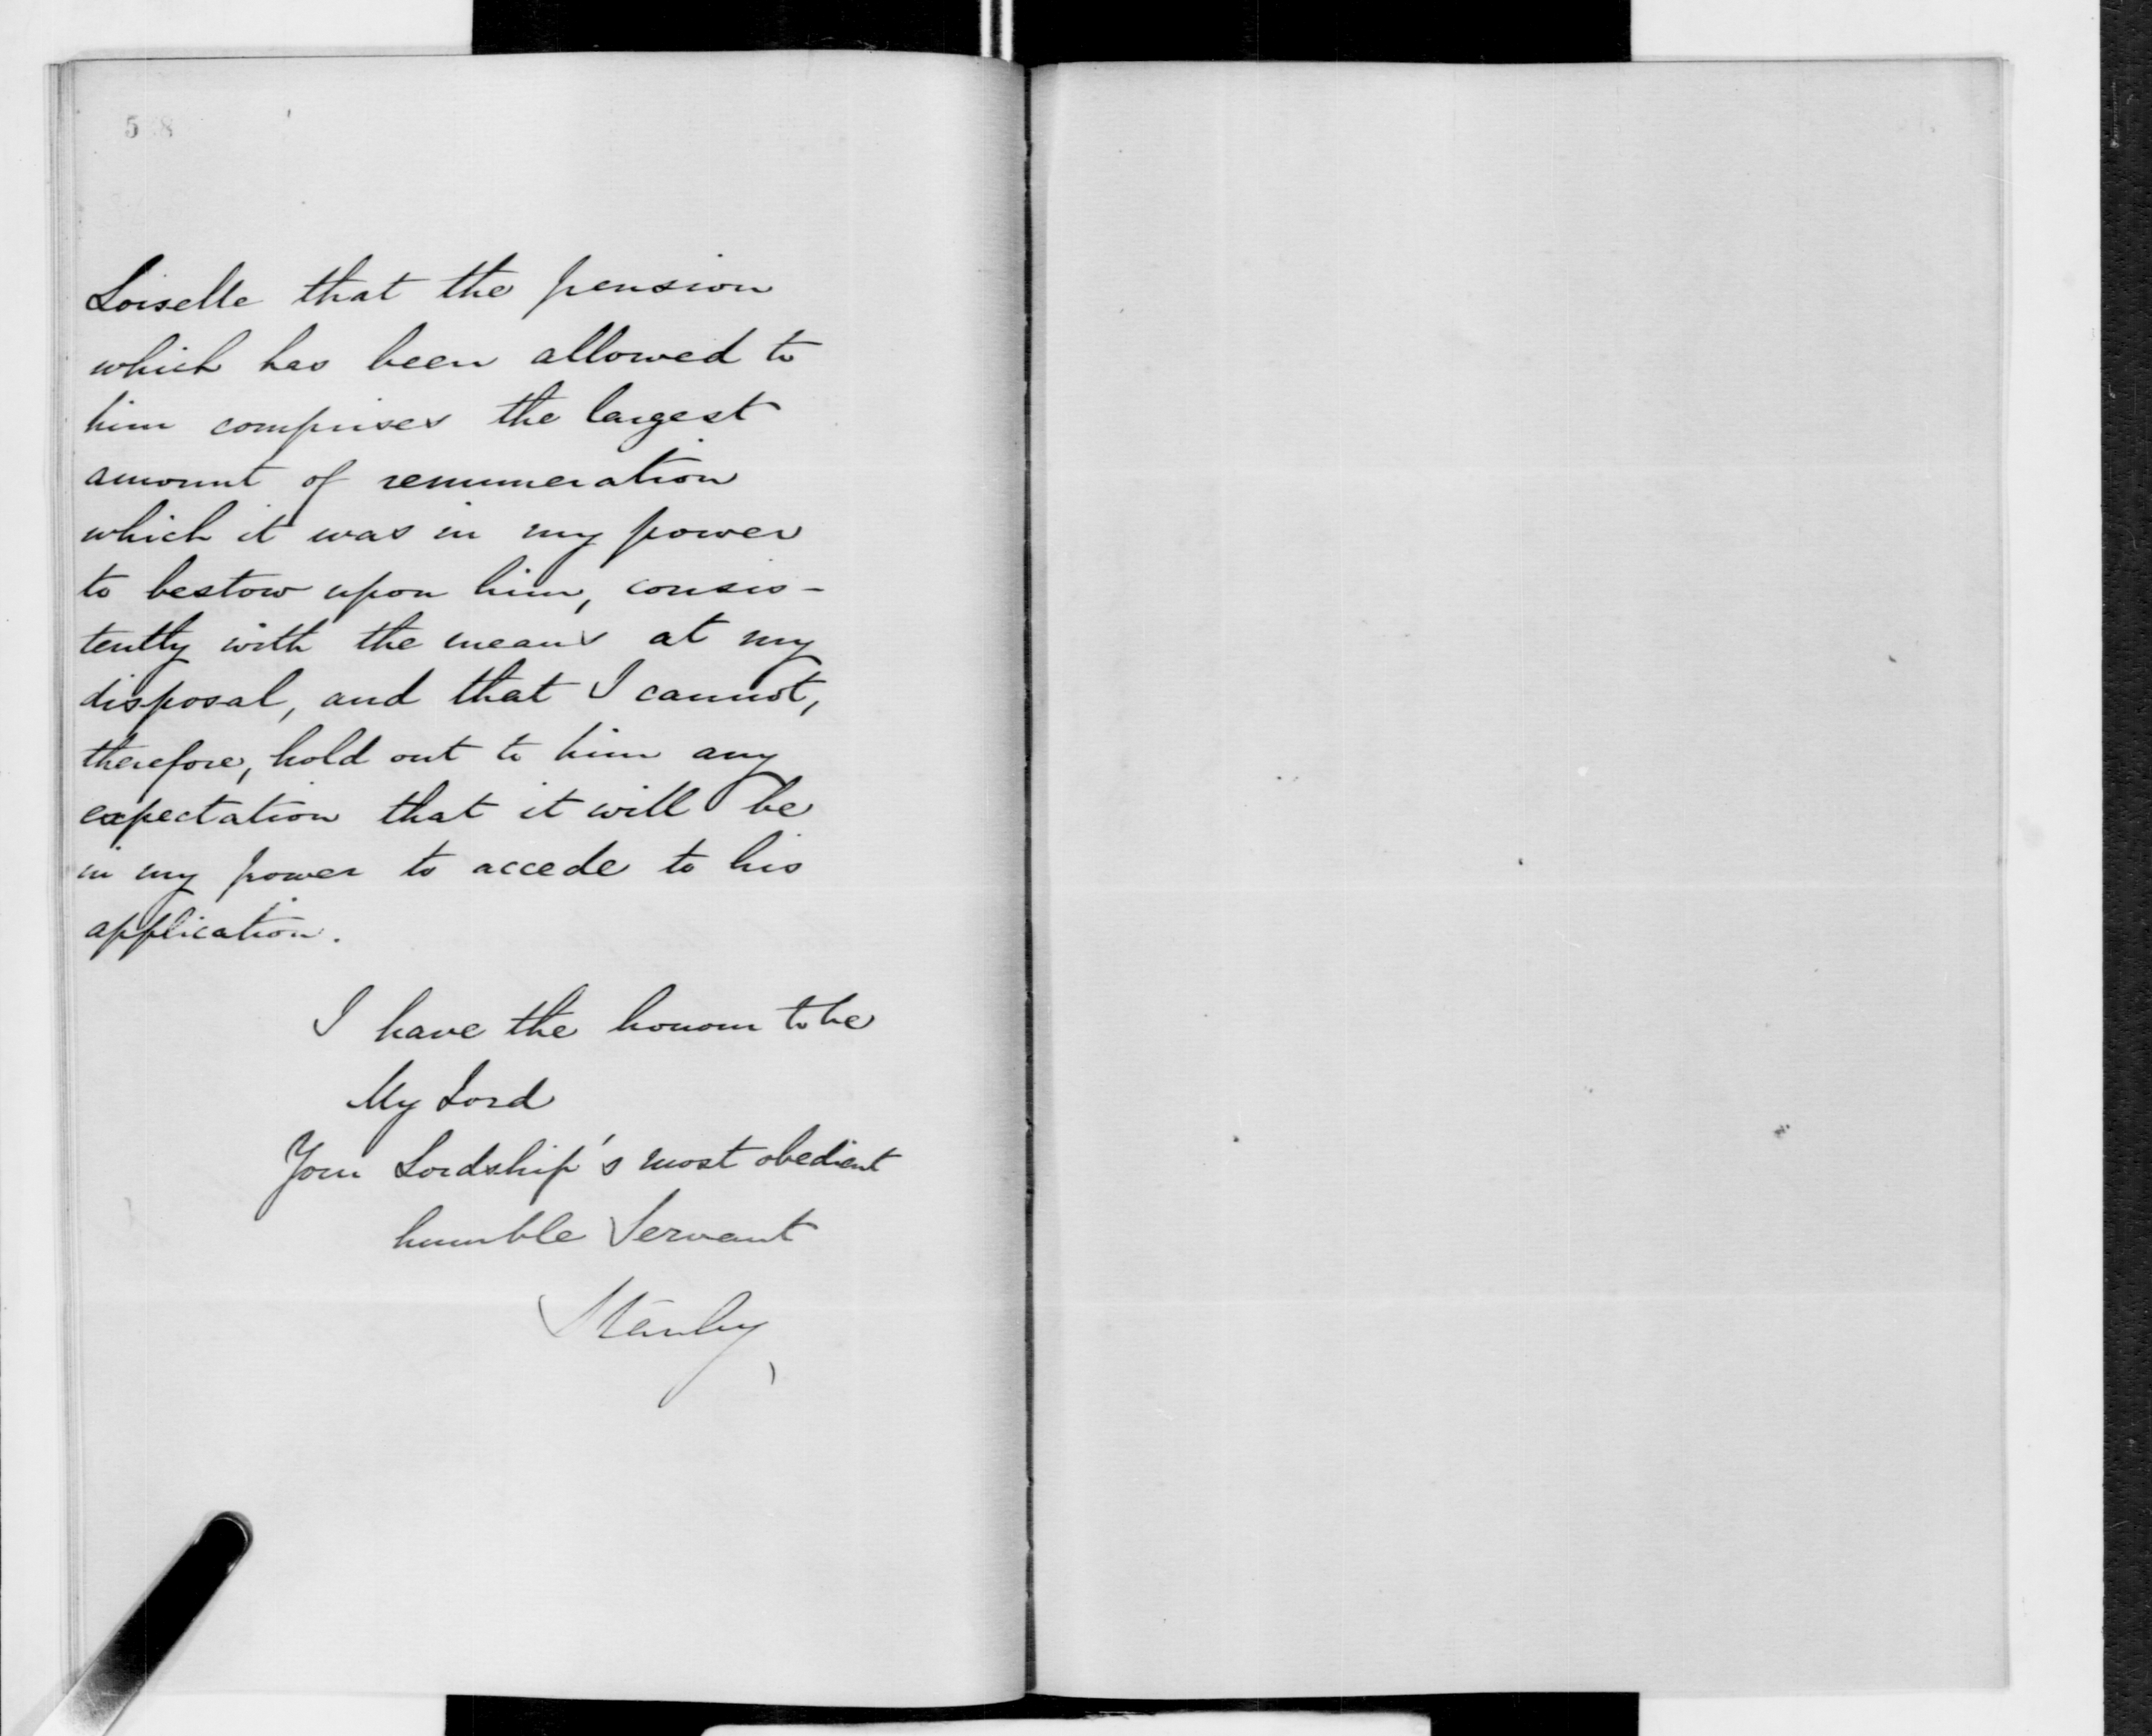 Loiselle that the pension
which has been allowed to
him comprises the largest
amount of remuneration
which it was in my power
to bestow upon him, consis-
tently with the means at my
disposal, and that I cannot,
therefore, hold out to him any
expectation that it will be
in my power to accede to his
application.
I have the honour to be
My Lord
Your Lordship's most obedient
humble Servant
Stanley